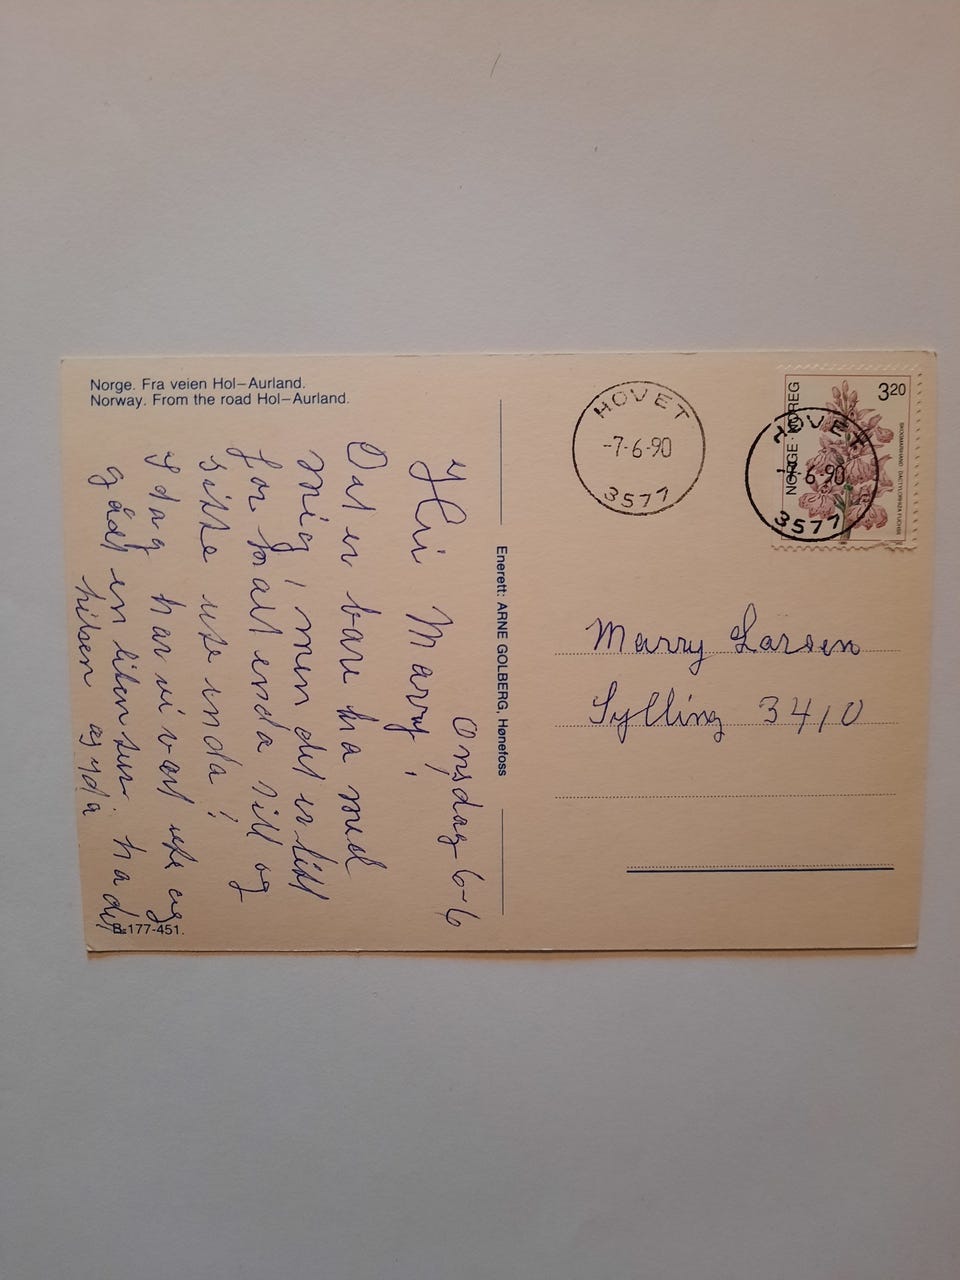 Norge. Fra veien Hol–Aurland.
Norway. From the road Hol–Aurland.
Onsdag 6-6
Hei Marry!
Det er bare bra med
mig, men det er litt
for kalt enda till og
sitte ute enda!
I dag har vi vært ute og
gådt en liten tur. ha det
hilsen
B-177-451.
Enerett: ARNE GOLBERG, Hønefoss
HOVET
-7-6-90
3577
NORGE·NOREG
320
SKOGMARIHAND DACTYLORHIZA FUCHSII
HOVET
-7-6-90
3577
Marry Larsen
Sylling 3410